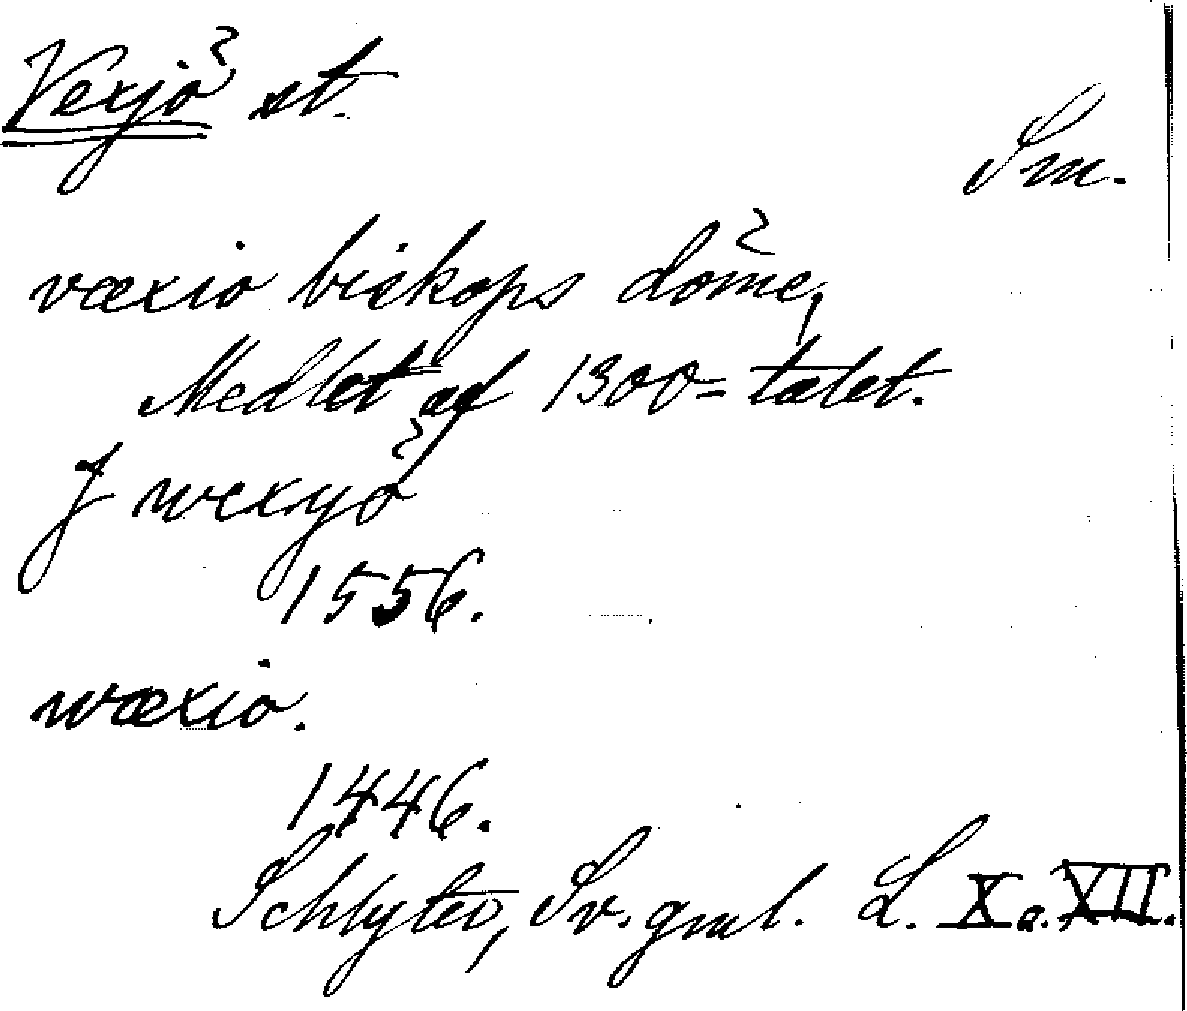 Vexjö st.
Sm.
væxio biskops döme,
Medlet af 1300-talet.
J wexyö
1556.
wæxio.
1446.
Schlyter, Sv. gml. L. X o. XII.